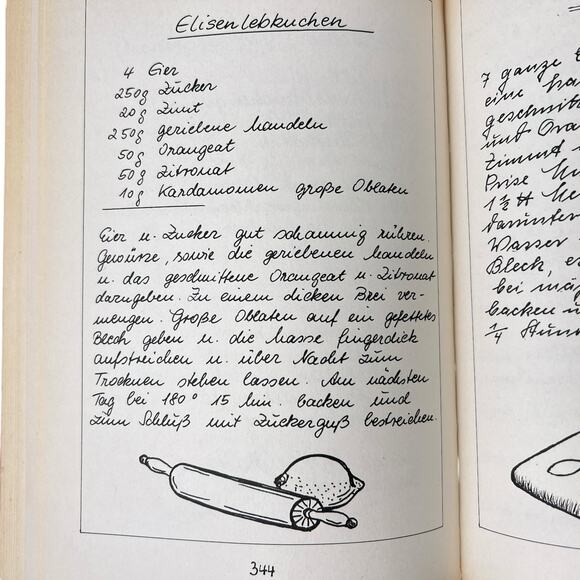 Elisenlebkuchen
4 Eier
250g Zucker
20g Zimt
250g geriebene Mandeln
50g Orangeat
50g Zitronat
10g Kardamomen große Oblaten
Eier u. Zucker gut schaumig rühren.
Gewürze, sowie die geriebenen Mandeln
u. das geschnittene Orangeat u. Zitronat
dazugeben. Zu einem dicken Brei ver-
mengen. Große Oblaten auf ein gefettetes
Blech geben u. die Masse fingerdick
aufstreichen u. über Nacht zum
Trocknen stehen lassen. Am nächsten
Tag bei 180° 15 Min. backen und
zum Schluß mit Zuckerguß bestreichen.
344
7 ganze
eine
geschnit
und Ora
Zimmt
Prise
1½ ℔
darunter
Wasser
Blech,
bei
backen
¼